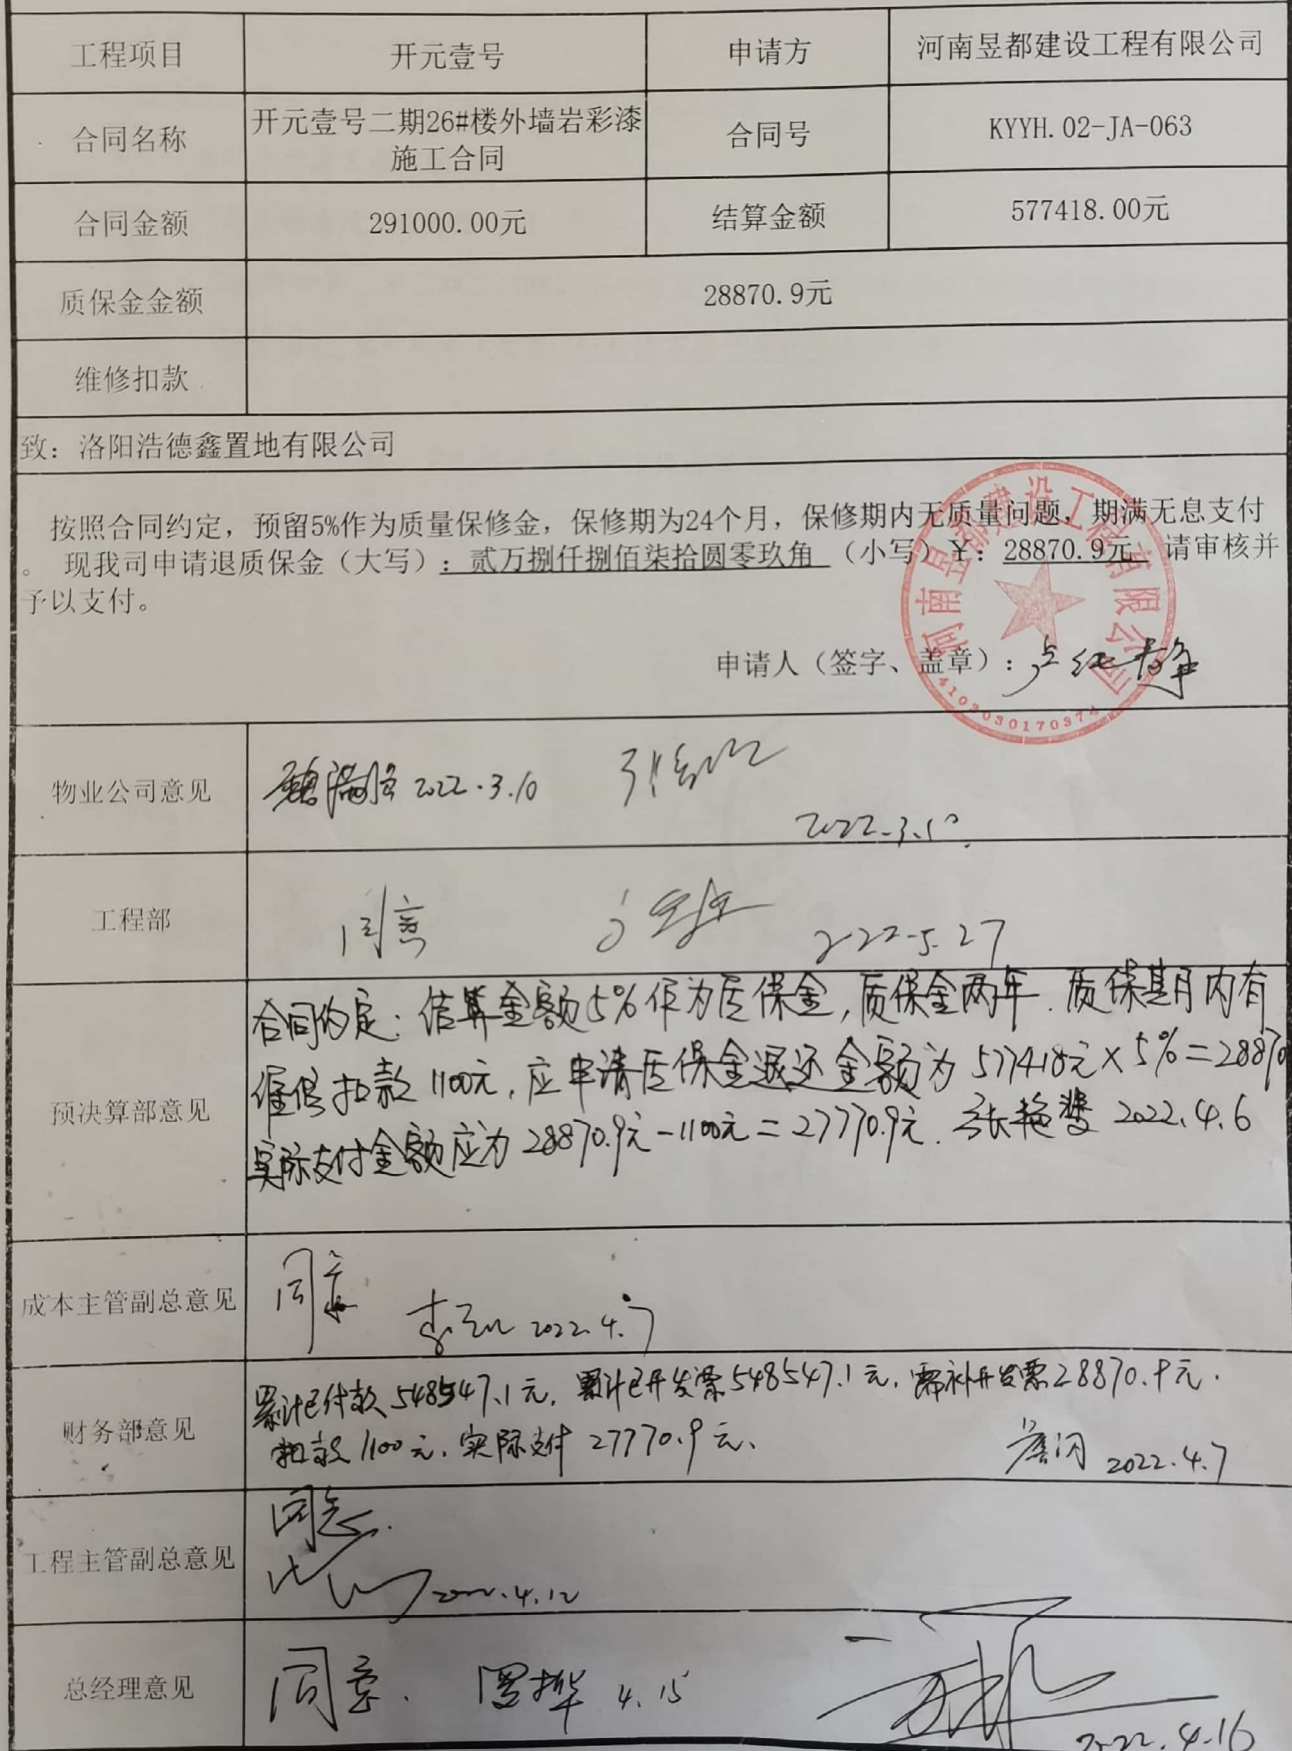 工程项目 开元壹号 申请方 河南昱都建设工程有限公司
合同名称 开元壹号二期26#楼外墙岩彩漆
施工合同 合同号 KYYH.02-JA-063
合同金额 291000.00元 结算金额 577418.00元
质保金金额 28870.9元
维修扣款
致：洛阳浩德鑫置地有限公司
按照合同约定，预留5%作为质量保修金，保修期为24个月，保修期内无质量问题，期满无息支付
。 现我司申请退质保金（大写）：贰万捌仟捌佰柒拾圆零玖角 （小写）￥：28870.9元 请审核并
予以支付。
河南昱都建设工程有限公司
4103030170374
申请人（签字、盖章）：卢红静
物业公司意见 2022.3.10
2022.3.10
工程部 同意 2022.5.27
合同约定：结算金额5%作为质保金，质保金两年．质保期内有
预决算部意见 维修扣款1100元，应申请质保金退还金额为577418元×5%=28870
实际支付金额应为28870.9元-1100元=27770.9元． 张艳 2022.4.6
成本主管副总意见 同意 2022.4.7
财务部意见 累计已付款548547.1元，累计已开发票548547.1元，需补开发票28870.9元．
扣款1100元．实际支付27770.9元、 2022.4.7
工程主管副总意见 同意． 2022.4.12
总经理意见 同意． 4.15
2022.4.16